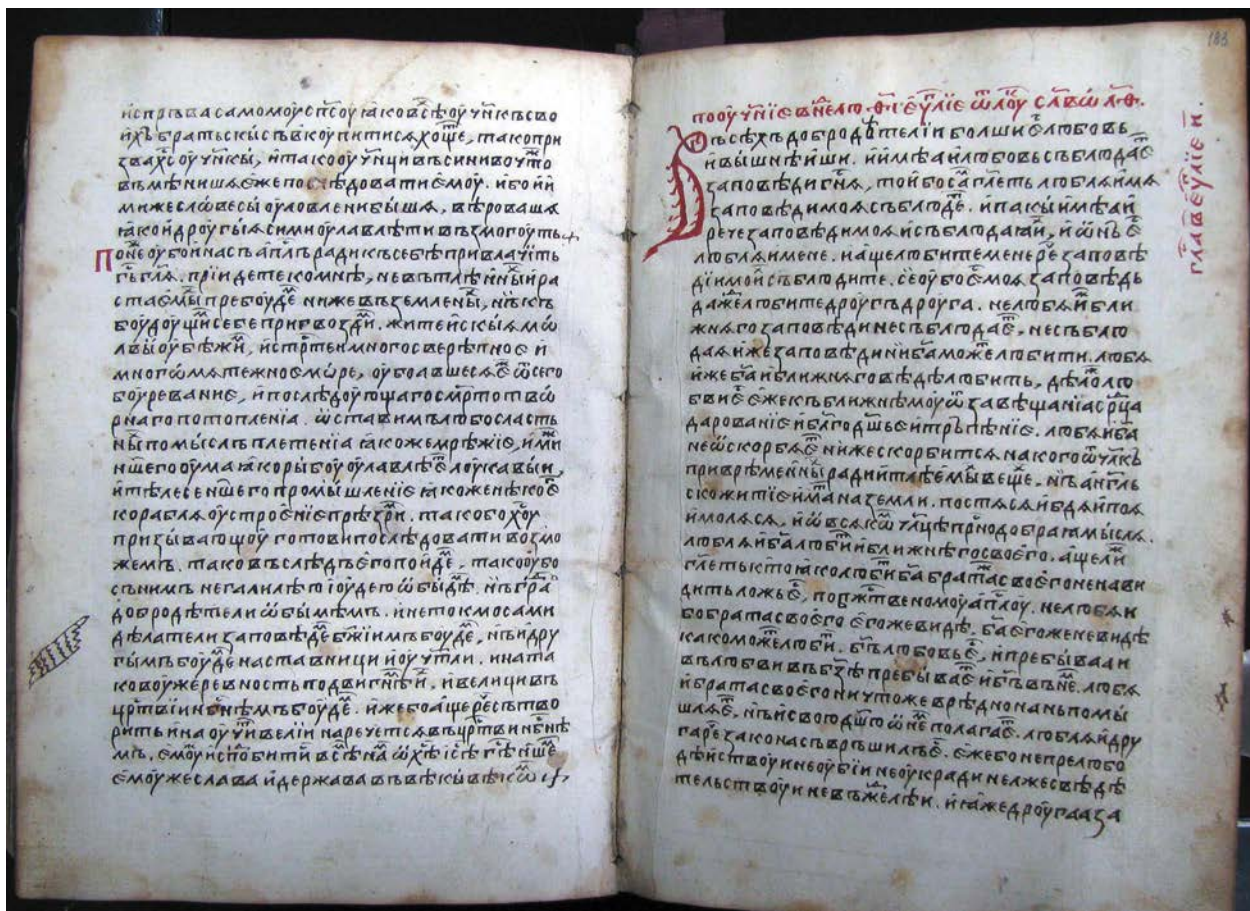 испръва самомоу спсоу ꙗко всѣ оучнкъ сво
ихъ братьскы съвкоупитися хоще, тако при
зва хс оучнкы, и тако оучнци въсини во что
въмѣнишѧ еже последовати емоу. ибо ии
ми же словесы оуловлени бышѧ, вѣровашѧ
ꙗко и дроугыѧ сими оулавлѣти възмогоуть
Поне оубо и насъ апль ради къ себѣ привлачить
гь глѧ. приидете ко мнѣ, не въ тлѣнны и ра
стаемы пребоуде ниже въ землены, нъ къ
боудоущи себе пригвозди. житейскыѧ мо
лвы оубѣжи, и стрте и многосверѣпное и
многомѧтежное море, оуболвшесѧ е ѿ сего
боуревание, и последоующаго смртотво
рнаго потоплениа. ѡставимъ любосласть
ны помыслъ плетениа ꙗко же мрѣжѧ, ими
ншего оума ꙗко рыбоу оулавлѣе лоукавыи,
и тѣлесе ншего промышление ꙗко же нѣкое
корабля оустроение прѣзри. тако бо хоу
призывающоу готови последовати возмо
жемъ. тако въслѣдъ его поиде, тако оубо
съ нимъ не галилѣю июдею ѡбыде. нъ гра
добродѣтели ѡбымемъ. и не токмо сами
дѣлатели заповѣде бжиимъ боуде, нъ и дру
гымъ боуде наставници и оучтли. и на та
ковоу же ревность подвигнѣи, и велици въ
цртвии нбнѣмъ боуде. иже бо аще ре сътво
рить и наоучи велии наречется въ цртви нбнѣ
мъ. емоу исподобити всѣ на ѡ хѣ ісѣ гѣ нше
емоу же слава и держава въ вѣкы вѣкѡ
183
пооучние в не по ѳі еулие ѿ лоу слв ѡ л ѳ.
глав еулие н.
Въсѣхъ добродѣтелии болши е любовь,
и вышнѣиши. и имѣа и любовь съблюдае
заповѣди гнѧ, той бо са глеть любѧи мѧ
заповѣди моѧ съблюде. и пакы имѣаи
рече заповѣди моѧ и съблюдаѧи, и ѡнъ е
любѧи мене. и аще любите мене ре заповѣ
ди мои съблюдите. се оубо е моѧ заповѣдь
да же любите дроугъ дроуга. не любѧи бли
жнѧго заповѣди не съблюдае, не съблю
даѧи же заповѣди ни ба може любити. любѧ
и же ба и ближнѧго вѣдѣ любить, дѣа лю
бви е еже къ ближнѣмоу ѿ завѣщаниа срца
дарование и блгодшье и тръпѣние. любѧи ба
не ѡскорбѧе ниже скорбитсѧ на кого ѿ члкъ
приврѣменны ради и тлѣемы веще. нъ англь
ско житие има на земли. постѧсѧ и бдѧ и поѧ
и молѧсѧ, и ѡ всѧко члце прно добраѧ мыслѧ.
любѧи ба люби и ближнѣго своего. аще ли
глеть кто ꙗко люби ба брата своего ненави
дить ложь е, по бжтвеномоу аплоу. не любѧи
бо брата своего егоже видѣ, ба егоже не видѣ
како може люби. бъ любовь е, и пребываѧи
въ любви въ бзѣ пребывае и бъ въ не. любѧ
и брата своего ничто же врѣдно на нь помы
шлѧе, нъ и свою дшю ѡ не полагае. люблѧи дру
гаре закона съвръшилъ е. еже бо не прелюбо
дѣиствоуи не оубии не оукради не лжесвѣдѣ
тельствоуи не въжелѣи. и ꙗже дроугаа за